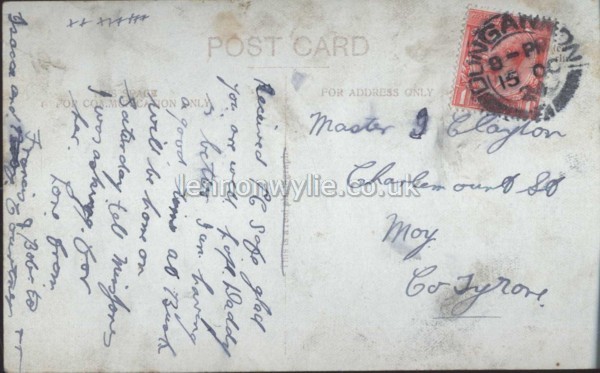 POST CARD
SPACE
FOR COMMUNICATION ONLY
FOR ADDRESS ONLY
Received PC Safe glad
you are well hope Daddy
is better I am having
a good time at
will be home on
Saturday tell Miss Jones
I was asking for
her. Love from
Francis & Bobs to
and
xx xxxxx
DUNGANNON
8-PM
15 OC
Master J Clayton
Charlemount St
Moy
Co Tyrone.
lennonwylie.co.uk